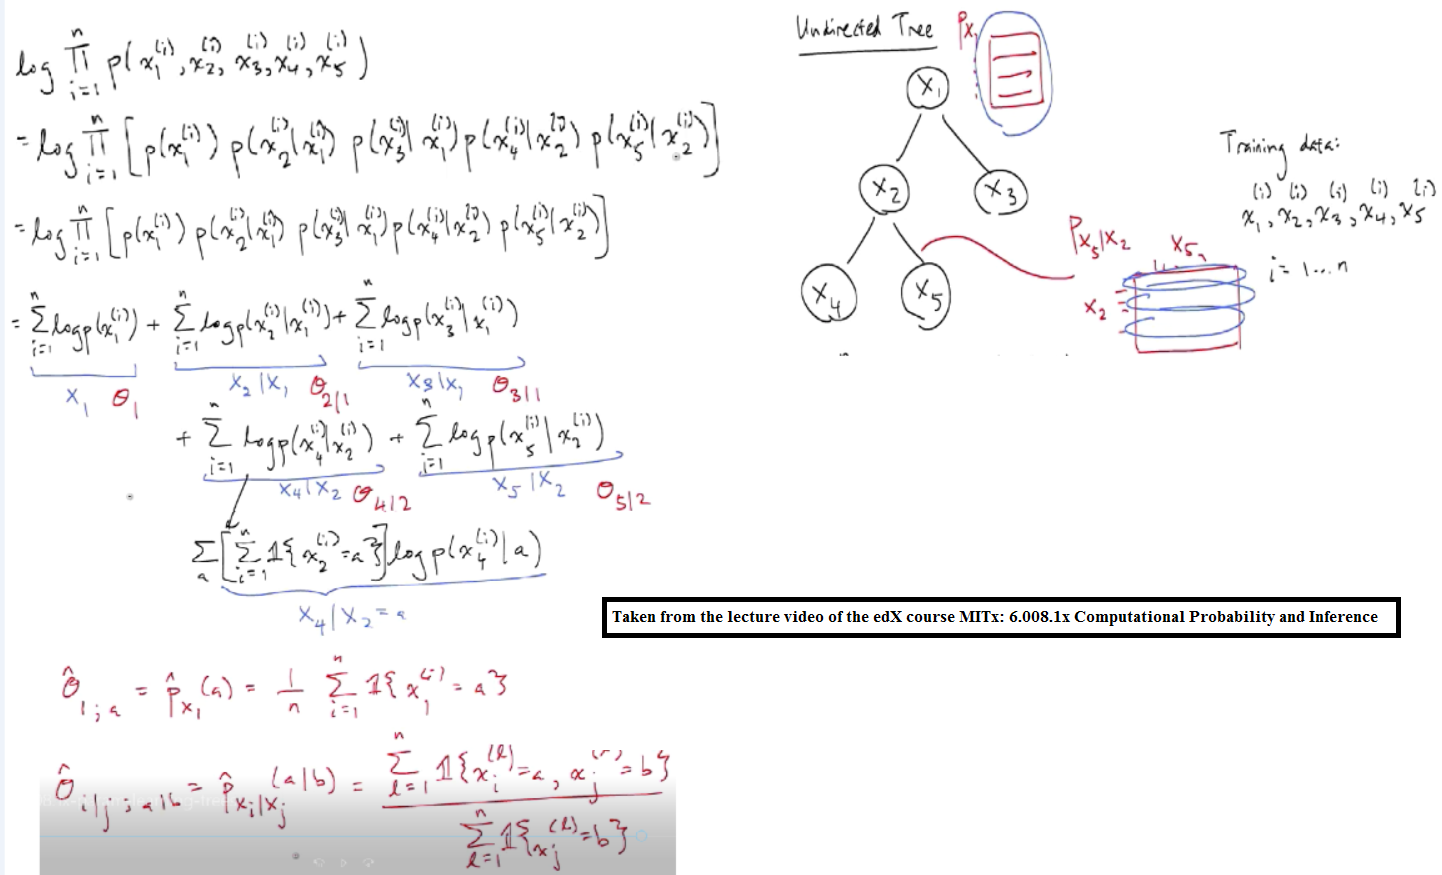 log ∏_{i=1}^{n} p(x_1^{(i)}, x_2^{(i)}, x_3^{(i)}, x_4^{(i)}, x_5^{(i)})
= log ∏_{i=1}^{n} [p(x_1^{(i)}) p(x_2^{(i)}|x_1^{(i)}) p(x_3^{(i)}|x_1^{(i)}) p(x_4^{(i)}|x_2^{(i)}) p(x_5^{(i)}|x_2^{(i)})]
= log ∏_{i=1}^{n} [p(x_1^{(i)}) p(x_2^{(i)}|x_1^{(i)}) p(x_3^{(i)}|x_1^{(i)}) p(x_4^{(i)}|x_2^{(i)}) p(x_5^{(i)}|x_2^{(i)})]
= ∑_{i=1}^{n} log p(x_1^{(i)}) + ∑_{i=1}^{n} log p(x_2^{(i)}|x_1^{(i)}) + ∑_{i=1}^{n} log p(x_3^{(i)}|x_1^{(i)})
X_1 θ_1 X_2|X_1 θ_{2|1} X_3|X_1 θ_{3|1}
+ ∑_{i=1}^{n} log p(x_4^{(i)}|x_2^{(i)}) + ∑_{i=1}^{n} log p(x_5^{(i)}|x_2^{(i)})
X_4|X_2 θ_{4|2} X_5|X_2 θ_{5|2}
∑_a [∑_{i=1}^{n} 𝟙{x_2^{(i)} = a}] log p(x_4^{(i)}|a)
X_4|X_2 = a
θ̂_{1;a} = p̂_{X_1}(a) = 1/n ∑_{i=1}^{n} 𝟙{x_1^{(i)} = a}
θ̂_{i|j;a|b} = p̂_{X_i|X_j}(a|b) = ∑_{l=1}^{n} 𝟙{x_i^{(l)} = a, x_j^{(l)} = b}
∑_{l=1}^{n} 𝟙{x_j^{(l)} = b}
Undirected Tree
p_{X_1}
X_1
X_2 X_3
X_4 X_5
p_{X_5|X_2}
X_5
X_2
Training data:
x_1^{(i)}, x_2^{(i)}, x_3^{(i)}, x_4^{(i)}, x_5^{(i)}
i = 1...n
Taken from the lecture video of the edX course MITx: 6.008.1x Computational Probability and Inference